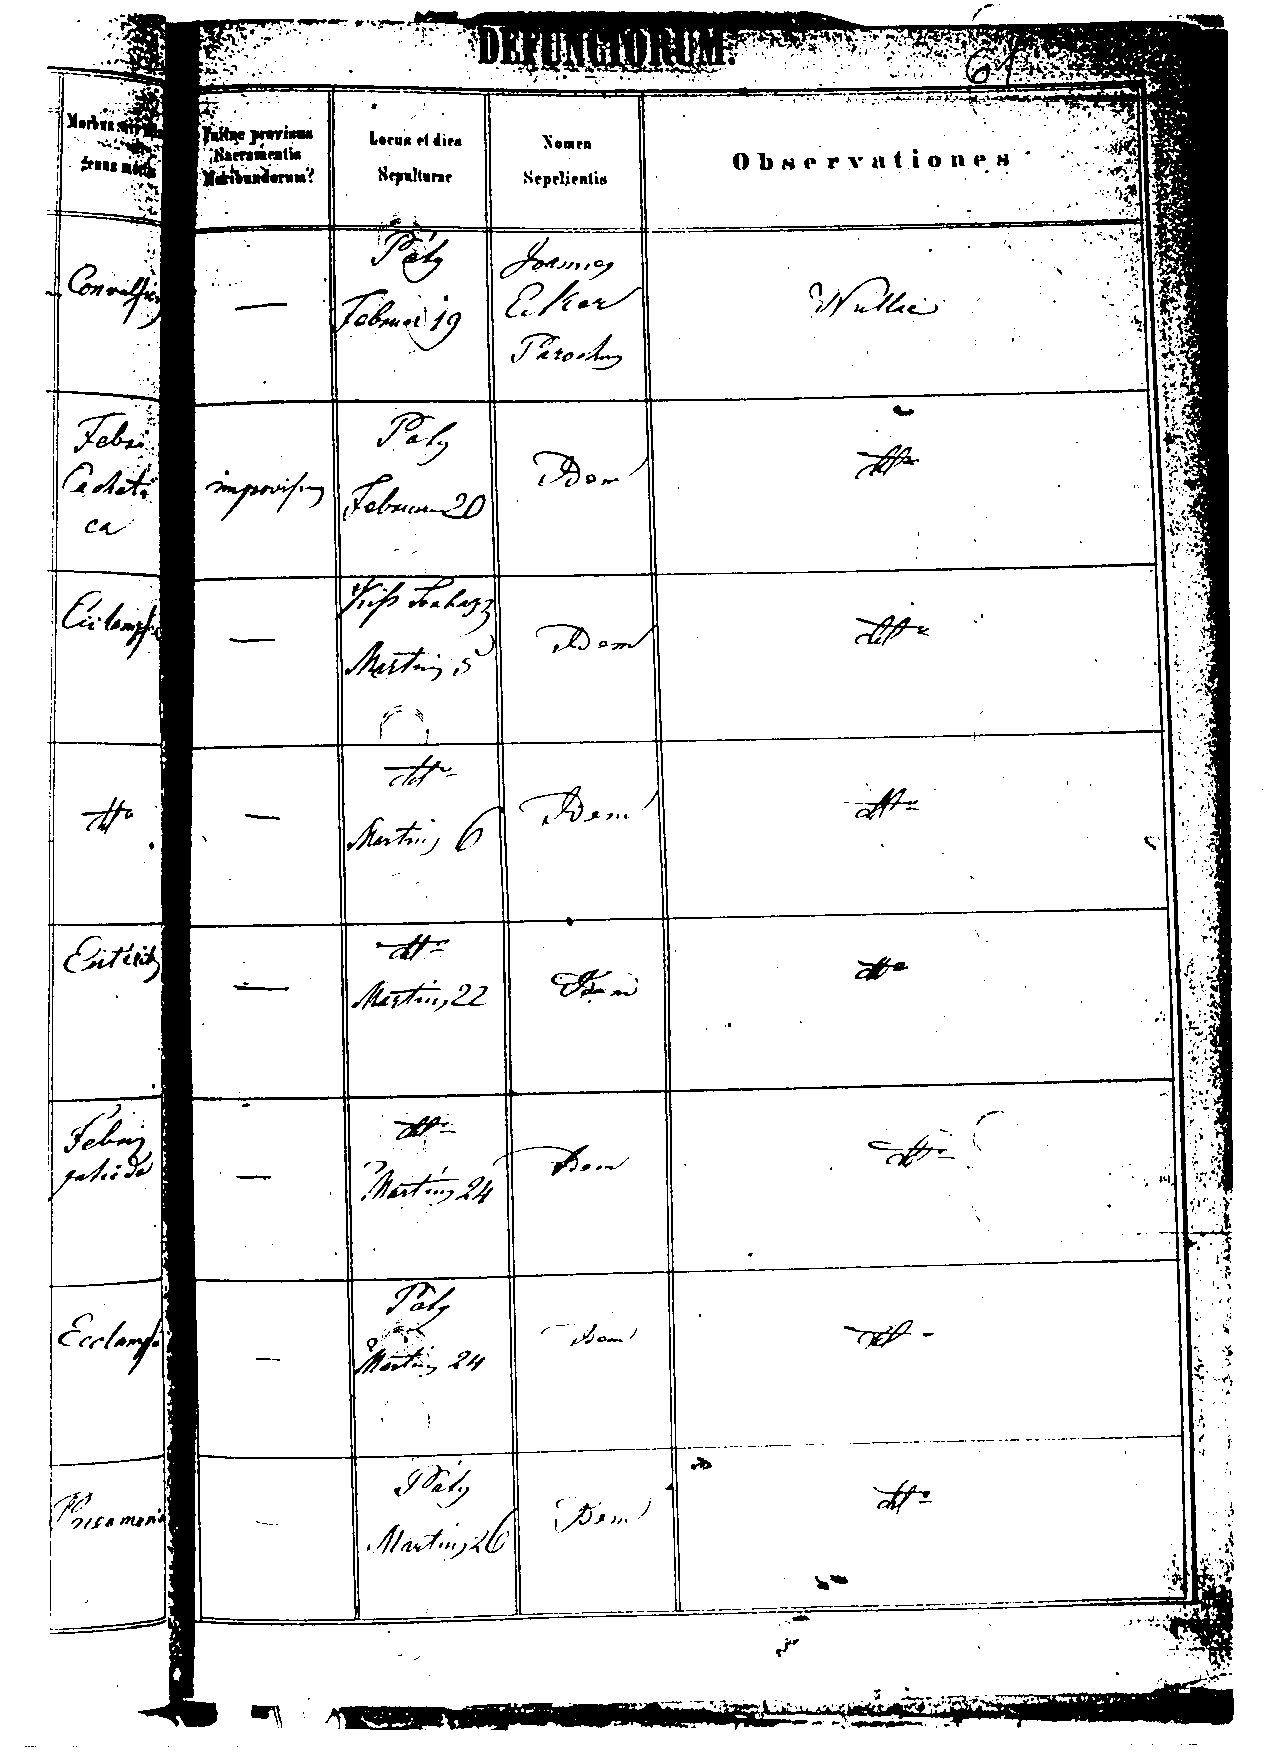 DEFUNCTORUM.
61
Morbus
genus mortis
Fuitne provisus
Sacramentis
Moribundorum?
Locus et dies
Sepulturae
Nomen
Sepelientis
Observationes
Páty
Februar 19
Joannes
Ecker
Parochus
Nullae
Febris
Cachecti
ca
improvisus
Paty
20
Idem
dtto
Eclampsis
—
Martius 5
Idem
dtto
dtto
—
dtto
Martius 6
Idem
dtto
Enteritis
—
dtto
Martius 22
Idem
dtto
Febris
—
dtto
Martius 24
Idem
dtto
Ecclampsis
—
Páty
Martius 24
Idem
dtto
Pneumonia
—
Páty
Martius 26
Idem
dtto